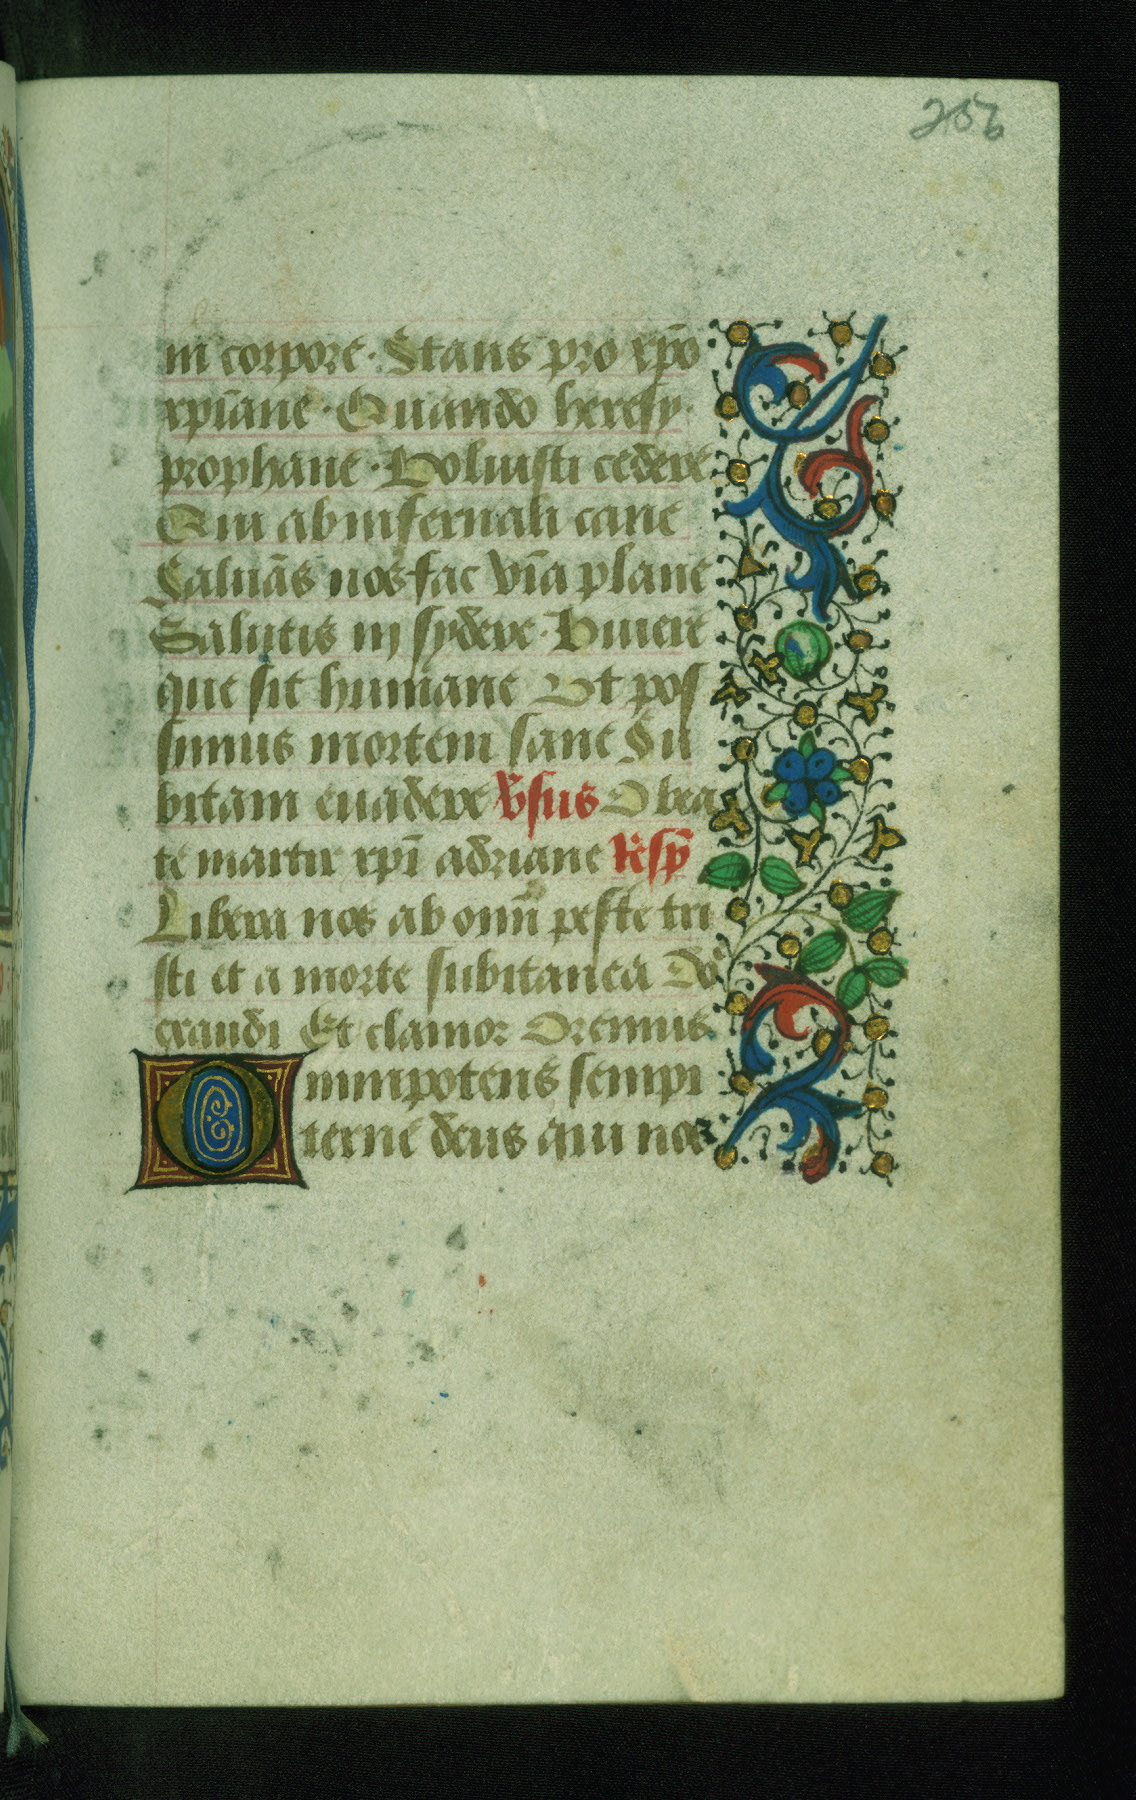 256
in corpore · Stans pro xp̄o
xp̄iane · Quando heresy
prophane · Voluisti cedere
Qui ab infernali cane
Saluās nos fac vīa plane
Salutis in sydere · Viuere
que sit humane Ut pos
sumus mortem sane Su
bitam euadere v̄sus O bea
te martir xp̄i adriane Resp̄
Libera nos ab omī peste tri
sti et a morte subitanea Do
exaudi Et clamor Oremus
Omnipotens sempi
terne deus qui nos